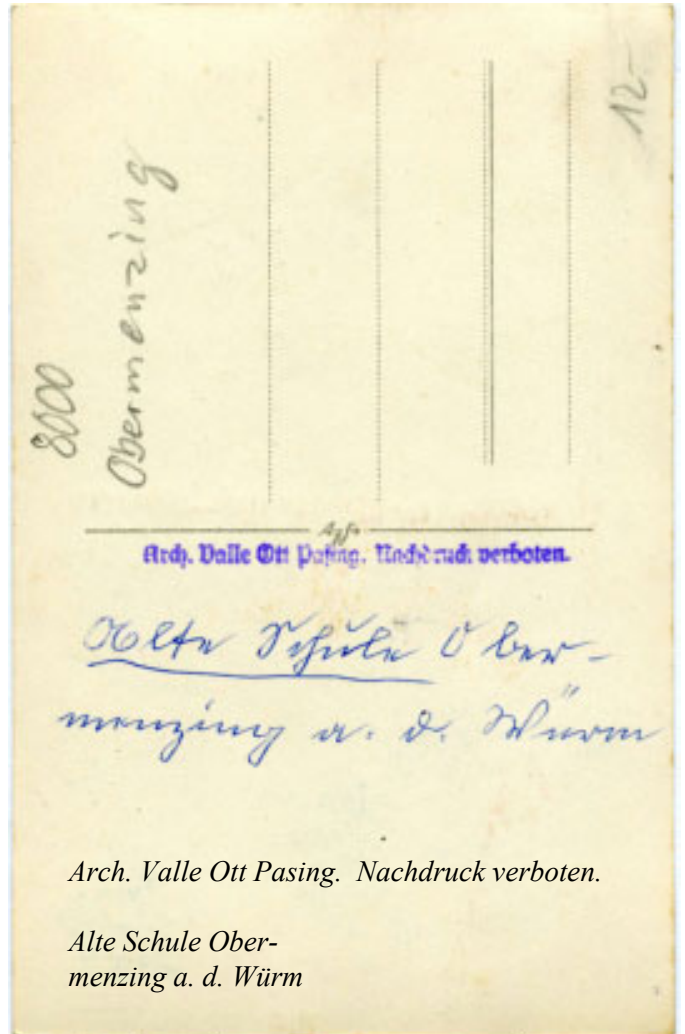 12.-
8000
Obermenzing
Arch. Valle Ott Pasing. Nachdruck verboten.
Alte Schule Ober-
menzing a. d. Würm
Arch. Valle Ott Pasing. Nachdruck verboten.
Alte Schule Ober-
menzing a. d. Würm